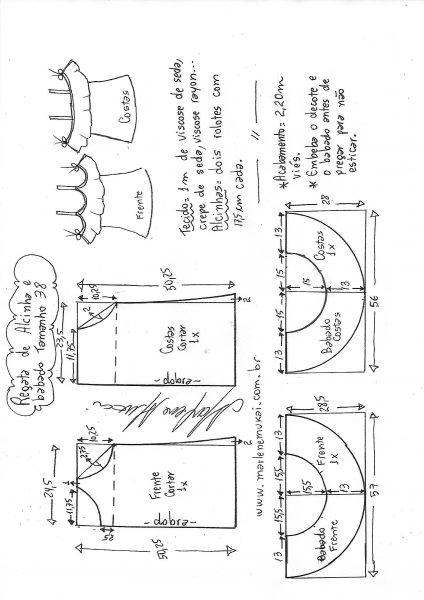 Regata de Alcinha e
babado Tamanho 38
Frente
Costas
Tecido= 1m de viscose de seda,
crepe de seda, viscose rayon...
Alcinhas= dois rolotês com
17,5 cm cada.
*Acabamento= 2,20m
viés.
*Embeba o decote e
o babado antes de
pregar para não
esticar.
24,5
11,75
1
10,25
25
Frente
Cortar
1x
-dobra-
50,25
2
23,5
11,75
10,25
Costas
Cortar
1x
-dobra-
50,25
2
www.marlenemukai.com.br
13
15,5
15,5
13
28,5
15,5
13
Frente
1x
Babado
Frente
57
13
15
15
13
28
15
13
Costas
1x
Babado
Costas
56